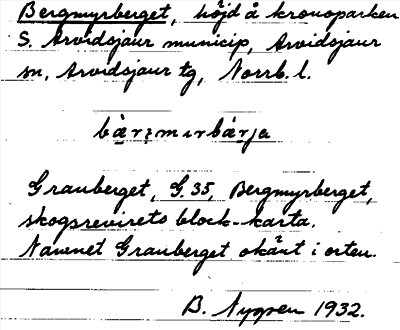 Bergmyrberget, höjd å kronoparken
S. Arvidsjaur municip, Arvidsjaur
sn, Arvidsjaur tg, Norrb. l.
bærzmɩrbærja
Granberget, G. 35, Bergmyrberget,
skogsrevirets block-karta.
Namnet Granberget okänt i orten.
B. Nygren 1932.